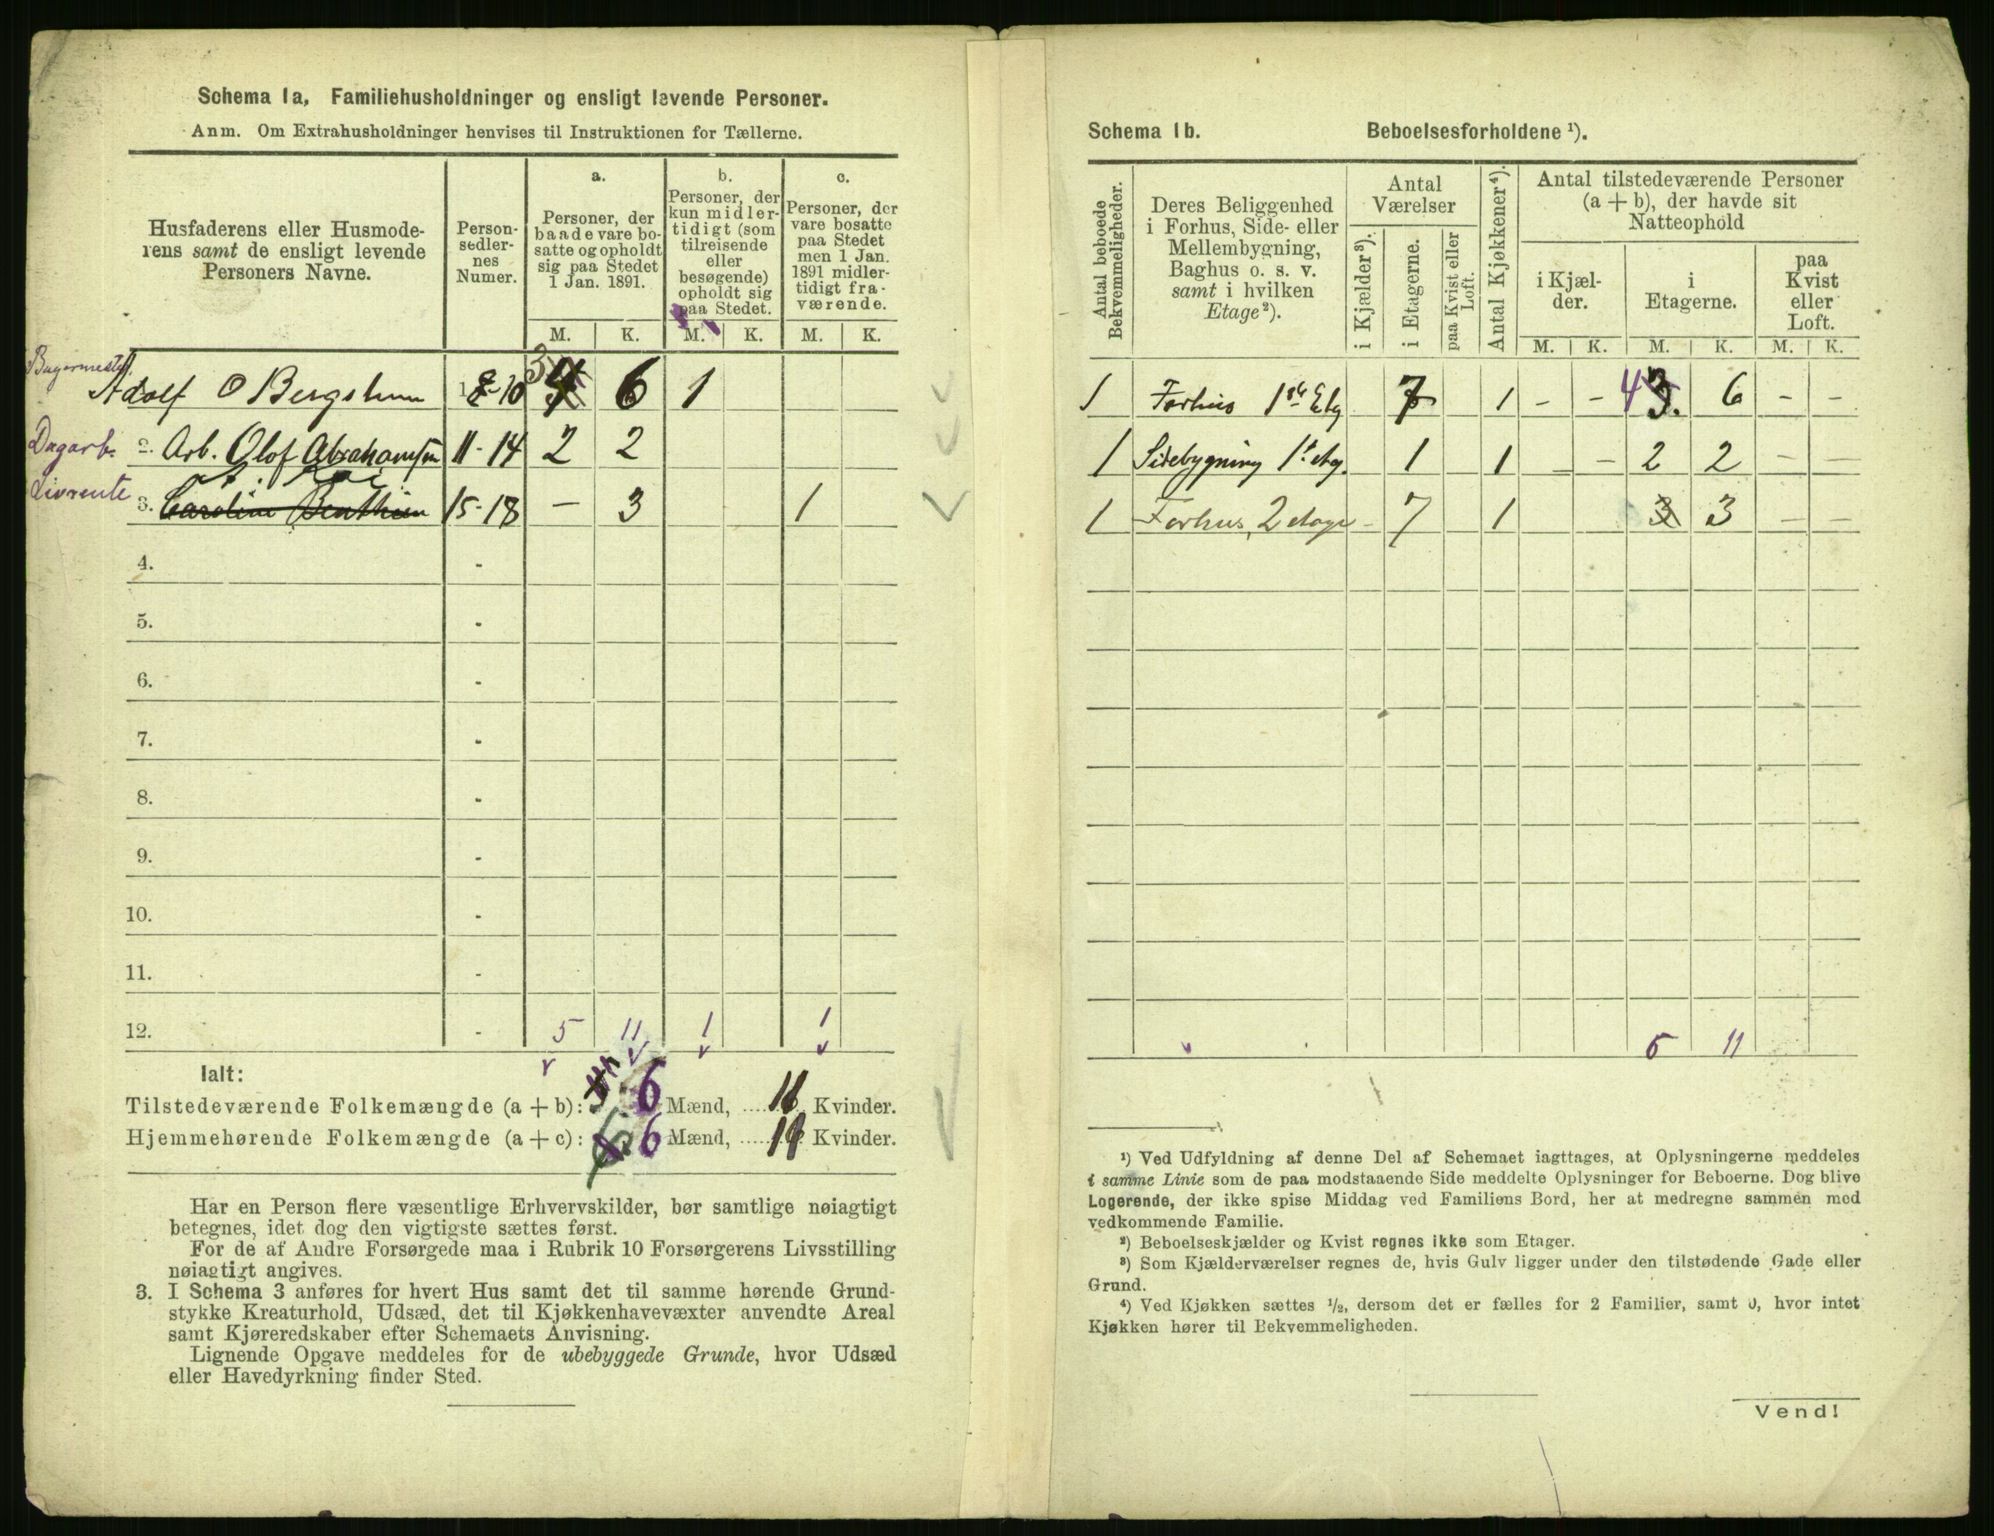 Schema 1a, Familiehusholdninger og ensligt levende Personer.
Anm. Om Extrahusholdninger henvises til Instruktionen for Tællerne.
Husfaderens eller Husmode-
rens samt de ensligt levende
Personers Navne.
Person-
sedler-
nes
Numer.
a.
Personer, der
baade vare bo-
satte og opholdt
sig paa Stedet
1 Jan. 1891.
b.
Personer, der
kun midler-
tidigt (som
tilreisende
eller
besøgende)
opholdt sig
paa Stedet.
c.
Personer, der
vare bosatte
paa Stedet
men 1 Jan.
1891 midler-
tidigt fra-
værende.
M. K. M. K. M. K.
Bagermester
Adolf O 10 3 6 1
Dagarb. 2. Arb. Olof Abrahamsen 11-14 2 2
Livrente 3. Caroline 15-18 — 3 1
4. -
5. -
6. -
7. -
8. -
9. -
10. -
11. -
12. - 5 11 1 1
Ialt:
Tilstedeværende Folkemængde (a + b): 6 Mænd, 11 Kvinder.
Hjemmehørende Folkemængde (a + c): 6 Mænd, 11 Kvinder.
Har en Person flere væsentlige Erhvervskilder, bør samtlige nøiagtigt
betegnes, idet dog den vigtigste sættes først.
For de af Andre Forsørgede maa i Rubrik 10 Forsørgerens Livsstilling
nøiagtigt angives.
3. I Schema 3 anføres for hvert Hus samt det til samme hørende Grund-
stykke Kreaturhold, Udsæd, det til Kjøkkenhavevæxter anvendte Areal
samt Kjøreredskaber efter Schemaets Anvisning.
Lignende Opgave meddeles for de ubebyggede Grunde, hvor Udsæd
eller Havedyrkning finder Sted.
Schema 1b. Beboelsesforholdene ¹).
Antal beboede
Bekvemmeligheder.
Deres Beliggenhed
i Forhus, Side- eller
Mellembygning,
Baghus o. s. v.
samt i hvilken
Etage ²).
Antal
Værelser
i Kjælder ³).
i Etagerne.
paa Kvist eller
Loft.
Antal Kjøkkener ⁴).
Antal tilstedeværende Personer
(a + b), der havde sit
Natteophold
i Kjæl-
der.
i
Etagerne.
paa
Kvist
eller
Loft.
M. K. M. K. M. K.
1 Forhus 1ste Etg 7 1 - - 4 3. 6 - -
1 Sidebygning 1st etg. 1 1 - - 2 2 - -
1 Forhus, 2 etage - 7 1 3 3 - -
11
¹) Ved Udfyldning af denne Del af Schemaet iagttages, at Oplysningerne meddeles
i samme Linie som de paa modstaaende Side meddelte Oplysninger for Beboerne. Dog blive
Logerende, der ikke spise Middag ved Familiens Bord, her at medregne sammen med
vedkommende Familie.
²) Beboelseskjælder og Kvist regnes ikke som Etager.
³) Som Kjælderværelser regnes de, hvis Gulv ligger under den tilstødende Gade eller
Grund.
⁴) Ved Kjøkken sættes ½, dersom det er fælles for 2 Familier, samt 0, hvor intet
Kjøkken hører til Bekvemmeligheden.
Vend!